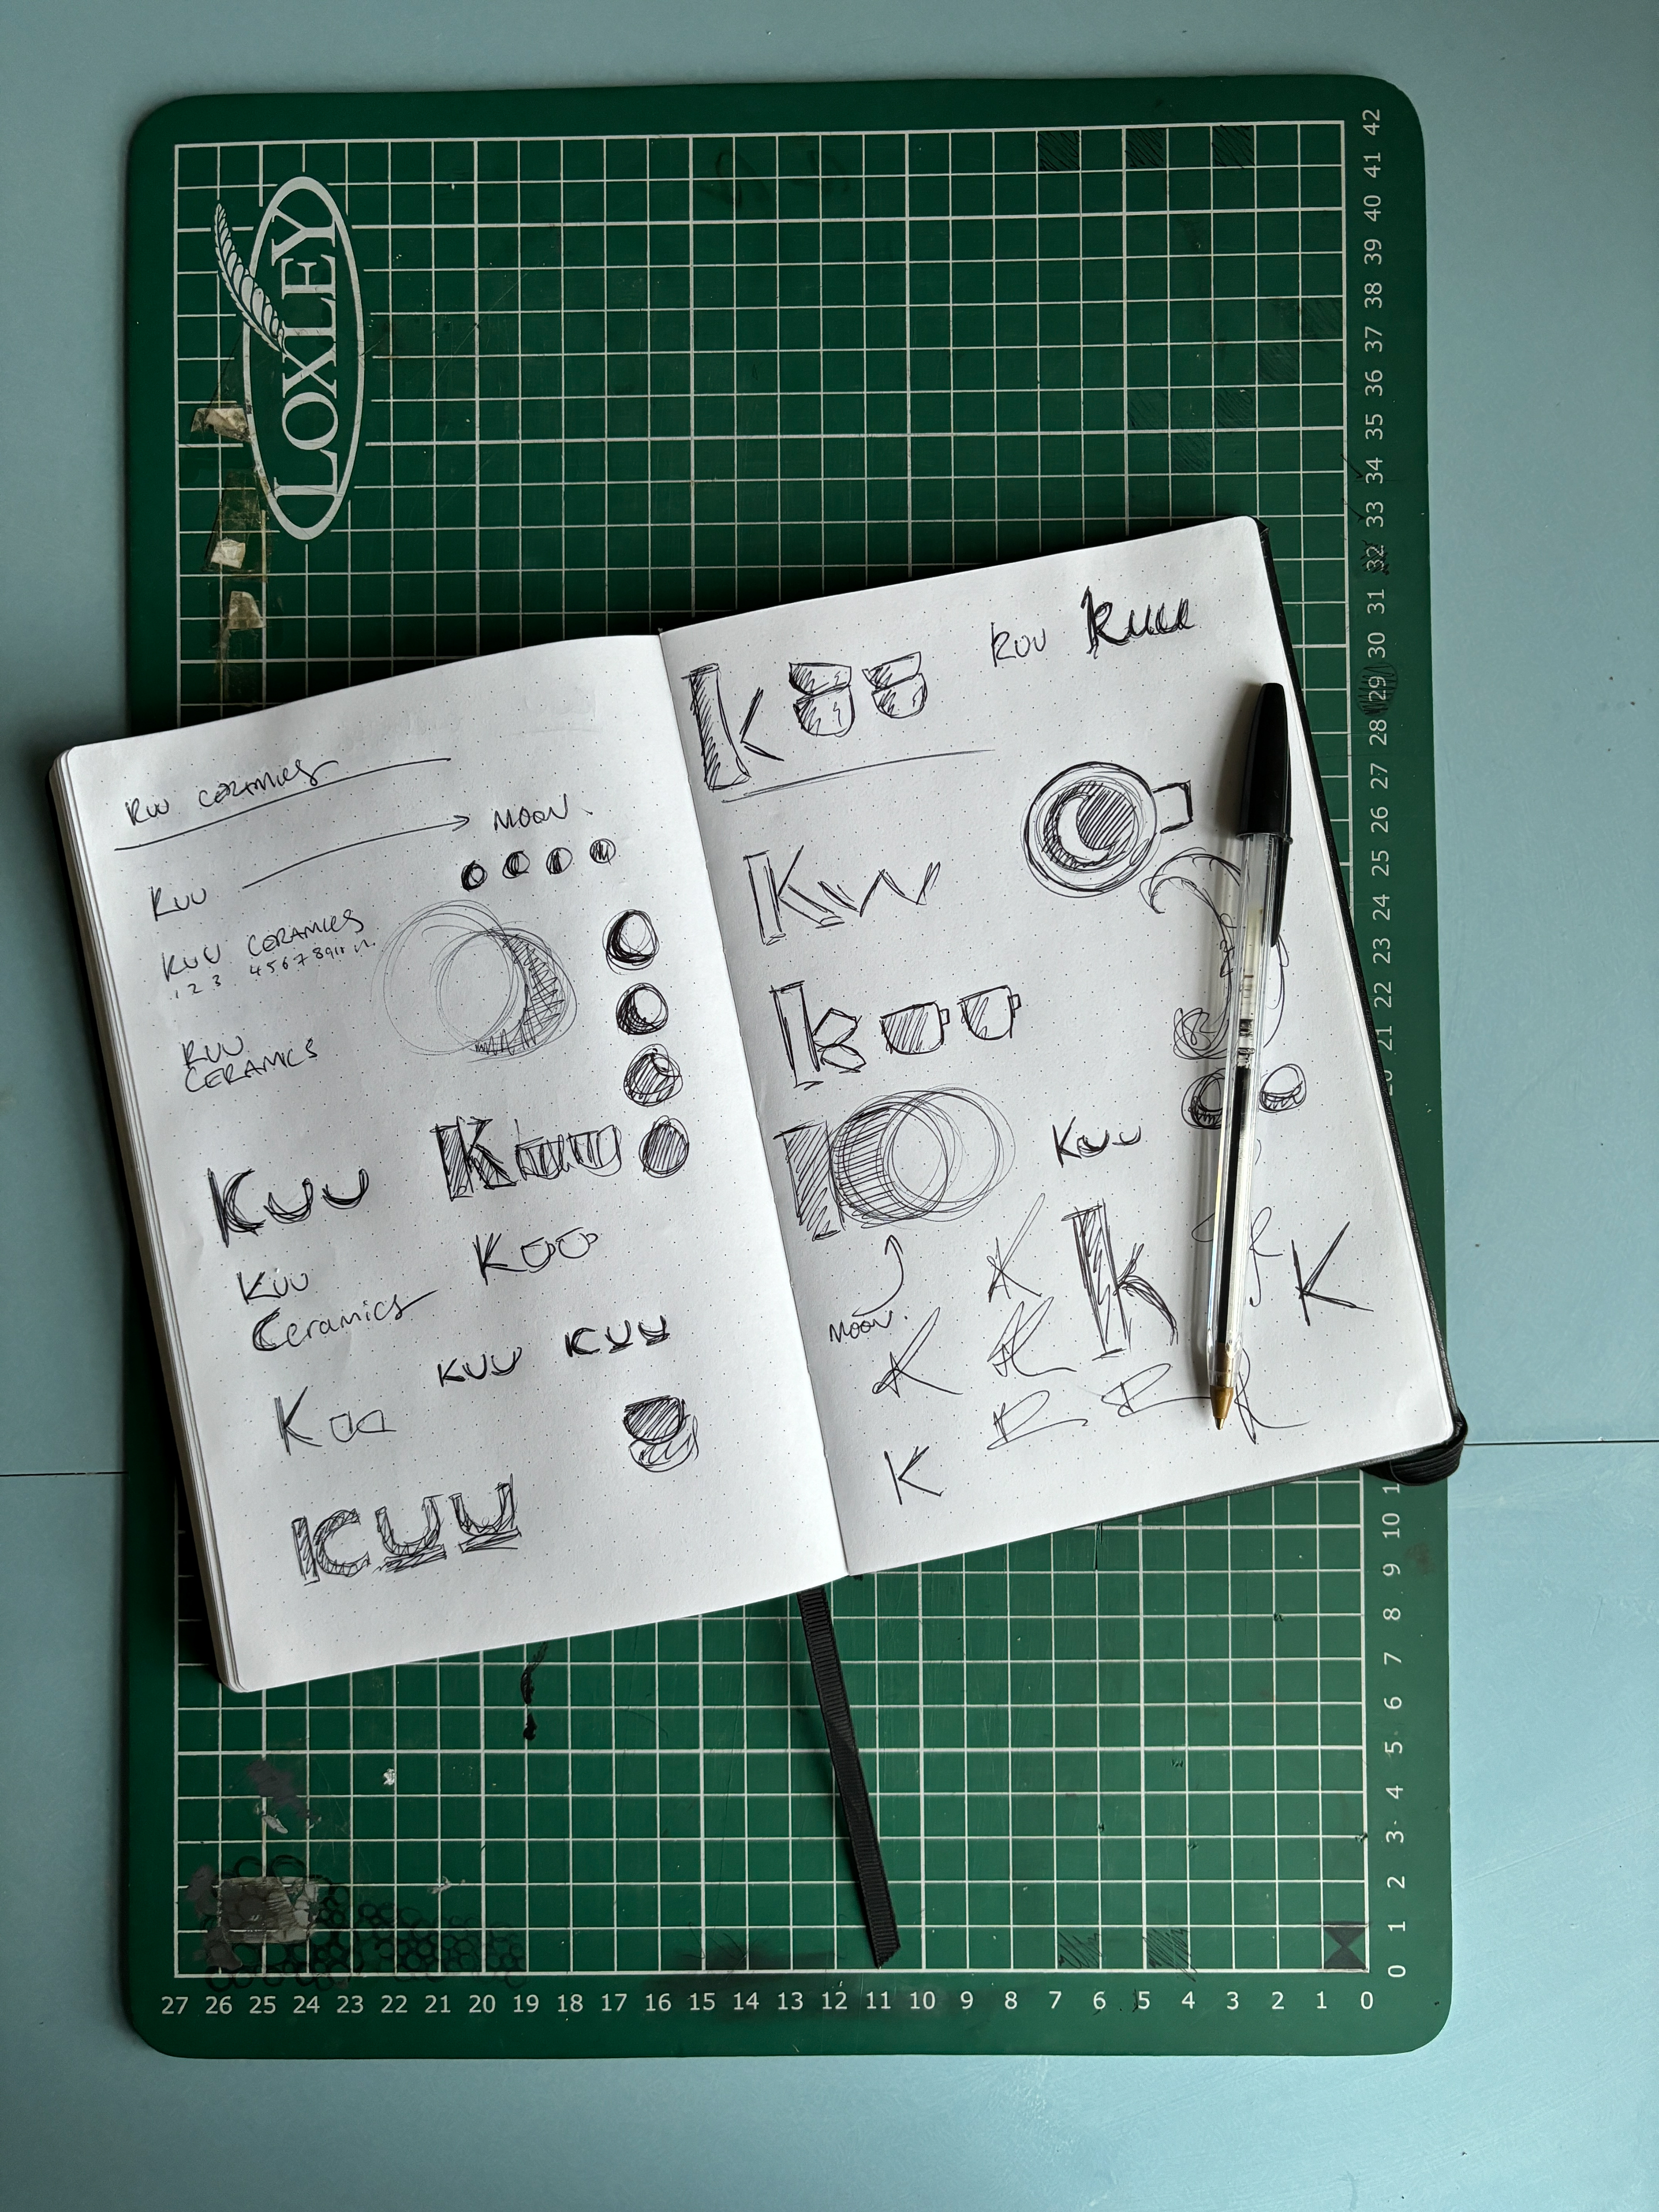 LOXLEY
KUU CERAMICS
MOON
KUU
KUU CERAMICS
1 2 3 4 5 6 7 8 9 10 11
KUU
CERAMICS
KUU
KUU
KUU
KUU
Ceramics
KUU
KUU
K
KUU
k
KUU
Kuu
Kuu
k
KUU
MOON.
K
K
K
K
K
k
K
42
41
40
39
38
37
36
35
34
33
32
31
30
29
28
27
26
25
24
23
22
21
10
9
8
7
6
5
4
3
2
1
0
27 26 25 24 23 22 21 20 19 18 17 16 15 14 13 12 11 10 9 8 7 6 5 4 3 2 1 0